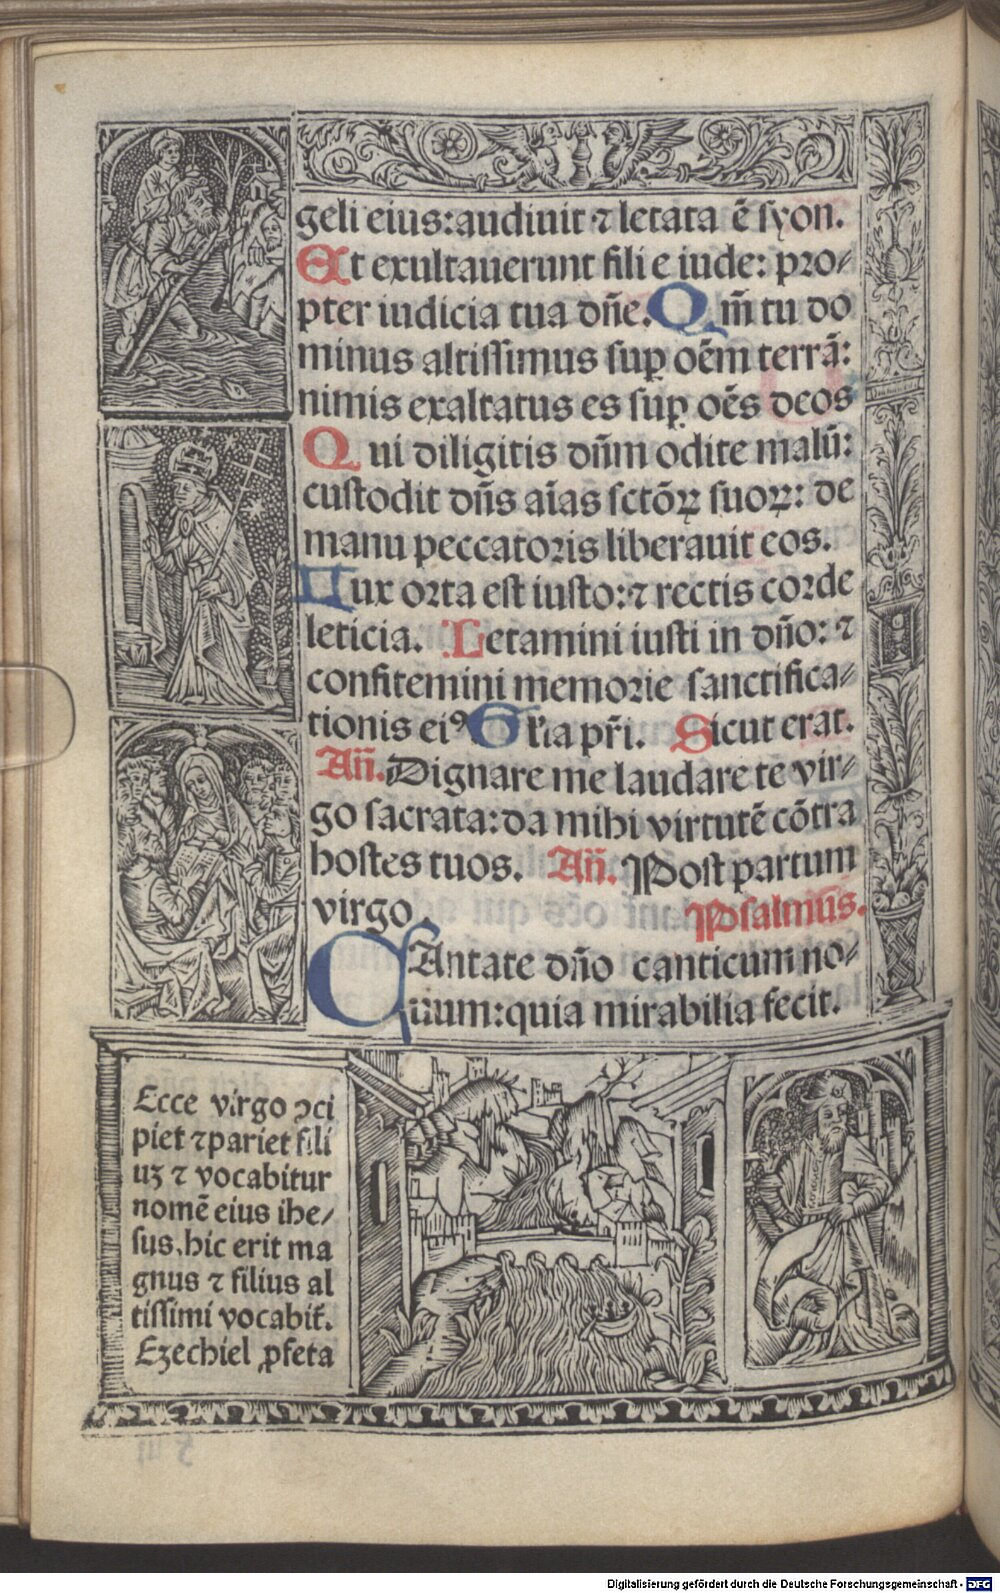 geli eius: audiuit ⁊ letata ē syon.
Et exultauerunt filie iude: pro⸗
pter iudicia tua dñe. Qm̄ tu do
minus altissimus suꝑ oēm terrā:
nimis exaltatus es suꝑ oēs deos
Qui diligitis dūm odite malū:
custodit dn̄s aīas sctōꝝ suoꝝ: de
manu peccatoris liberauit eos.
Lux orta est iusto: ⁊ rectis corde
leticia. Letamini iusti in dño: ⁊
confitemini memorie sanctifica⸗
tionis eiꝰ Gl'ia pr̄i. Sicut erat.
Añ. Dignare me laudare te vir⸗
go sacrata: da mihi virtutē cōtra
hostes tuos. Añ. Post partum
virgo. Psalmus.
CAntate dño canticum no⸗
uum: quia mirabilia fecit.
Ecce virgo ꝯci
piet ⁊ pariet fili
uʒ ⁊ vocabitur
nomē eius ihe⸗
sus. hic erit ma
gnus ⁊ filius al
tissimi vocabit̄.
Ezechiel ꝓfeta
Digitalisierung gefördert durch die Deutsche Forschungsgemeinschaft - DFG